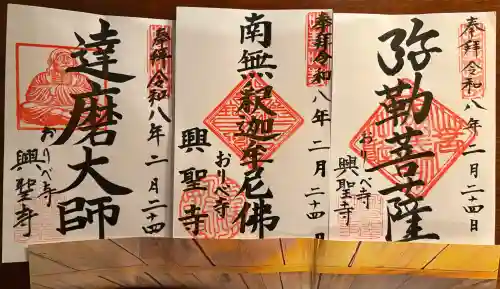 奉拝 令和八年二月二十四日
弥勒菩薩
おりべ寺
興聖寺
奉拝 令和八年二月二十四
南無釈迦牟尼佛
おりべ寺
興聖寺
奉拝 令和八年二月二十四
達磨大師
おりべ寺
興聖寺